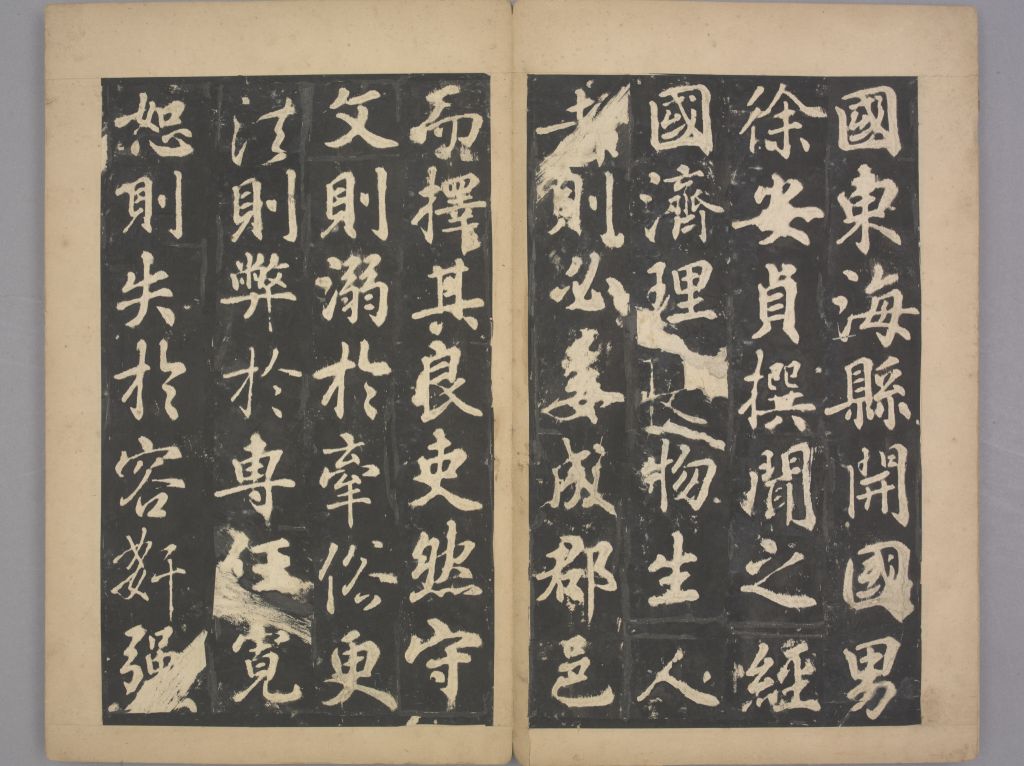 國東海縣開國男
徐安貞撰聞之經
國濟理物生人
者則必委成郡邑
而擇其良吏然守
文則溺於牽俗更
法則弊於專任寬
恕則失於容姧強